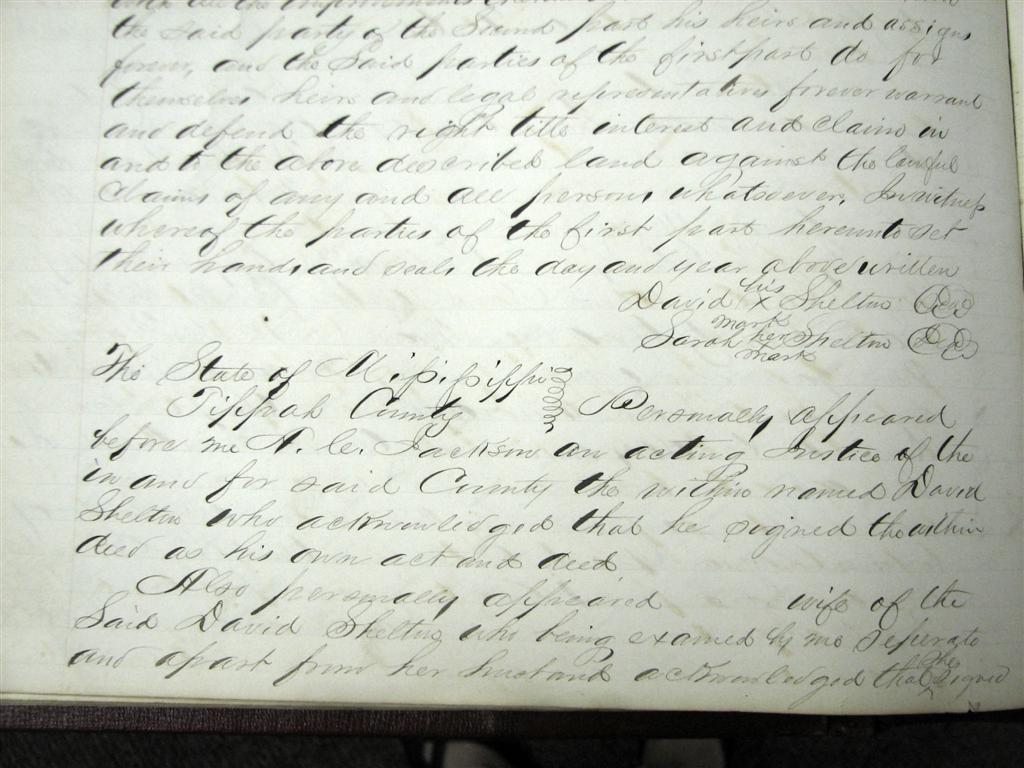 with all the improvements
the said party of the Second part his heirs and assigns
forever, and the Said parties of the first part do for
themselves heirs and legal representatives forever warrant
and defend the right title interest and claim in
and to the above described land against the lawful
Claims of any and all persons whatsoever. In witness
whereof the parties of the first part hereunto set
their hands and seals the day and year above written
David his x mark Shelton
Sarah her mark Shelton
The State of Mississippi
Tippah County Personally appeared
before me A. C. Jackson an acting Justice of the
in and for said County the within named David
Shelton who acknowledged that he signed the within
deed as his own act and deed
Also personally appeared wife of the
Said David Shelton who being examed by me Seperate
and apart from her husband acknowledged that she signed